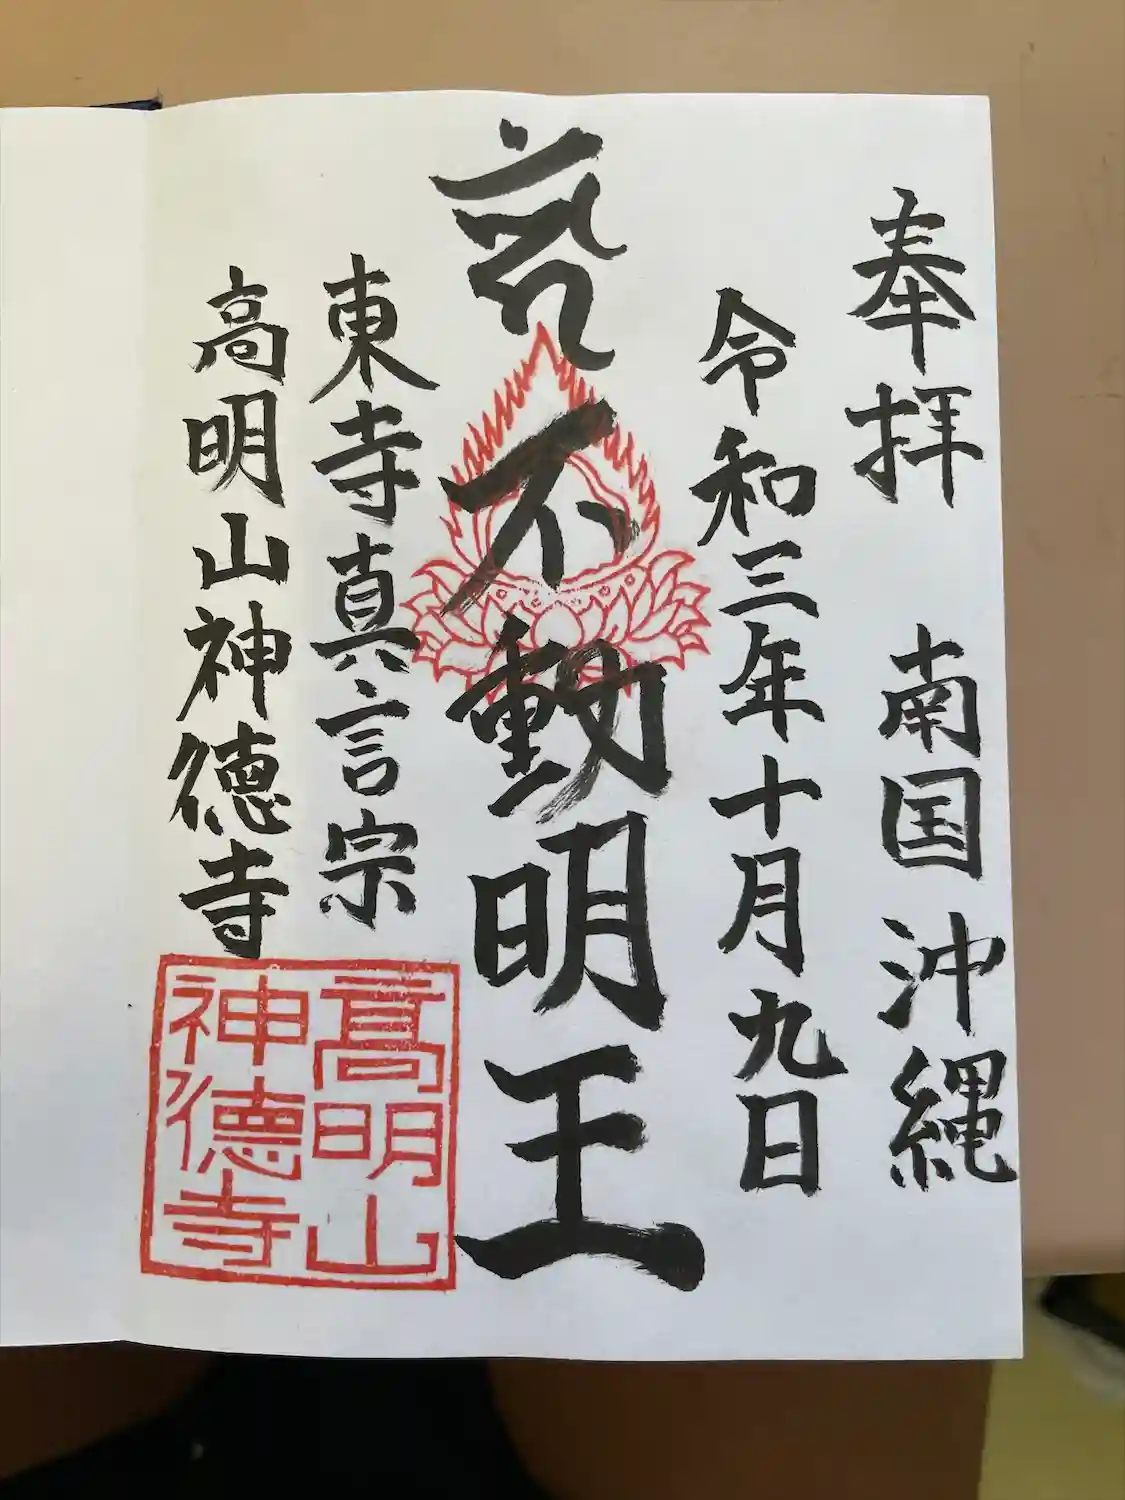 奉拝 南国沖縄
令和三年十月九日
不動明王
東寺真言宗
高明山神徳寺
高明山
神德寺